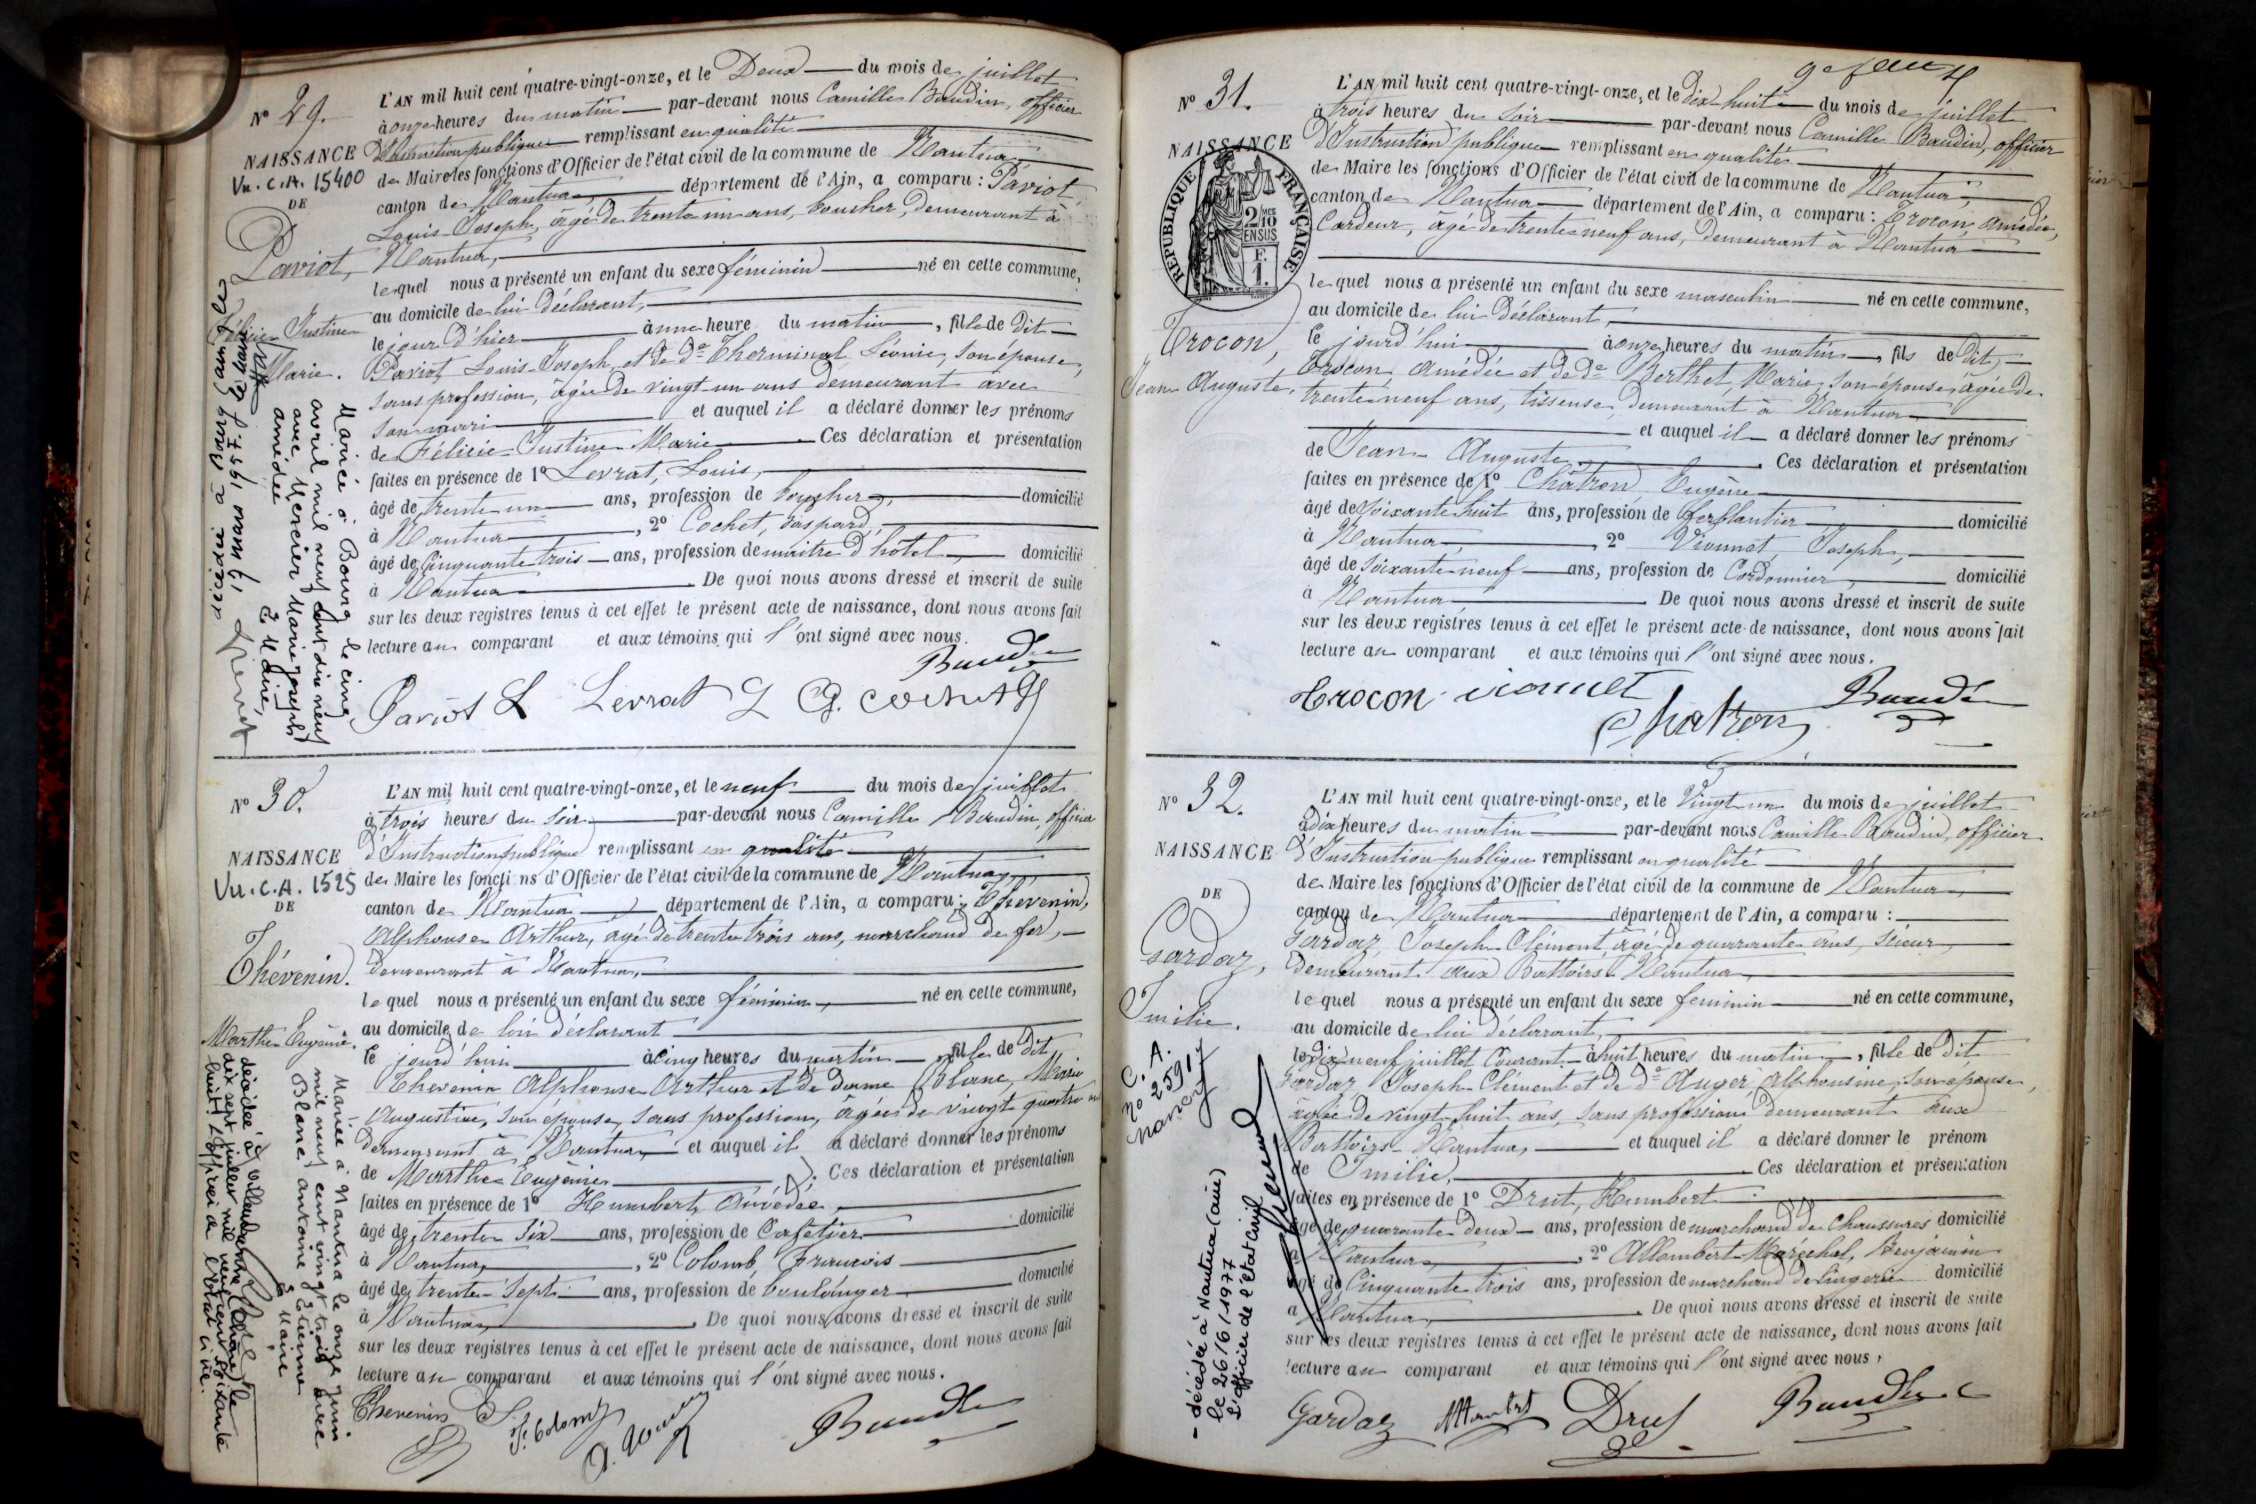 N° 29.
NAISSANCE
Vu. C.A. 15400
DE
Paviot,
Félicie Justine
Marie.
L'AN mil huit cent quatre-vingt-onze, et le Deux du mois de juillet
à onze heures du matin par-devant nous Camille Baudin, officier
d'Instruction publique remplissant en qualité
de Maire les fonctions d'Officier de l'état civil de la commune de Nantua,
canton de Nantua, département de l'Ain, a comparu : Paviot,
Louis Joseph, âgé de trente un ans, boucher, demeurant à
Nantua,
lequel nous a présenté un enfant du sexe féminin né en cette commune,
au domicile de lui déclarant,
le jour d'hier à une heure du matin, fille de dit
Paviot Louis-Joseph et de de Therminal Léonie, son épouse,
sans profession, âgée de vingt-un ans demeurant avec
son mari et auquel il a déclaré donner les prénoms
de Félicie Justine Marie Ces déclaration et présentation
faites en présence de 1° Levrat, Louis,
âgé de trente un ans, profession de boucher, domicilié
à Nantua, 2° Cochet, Gaspard,
âgé de Cinquante trois ans, profession de maître d'hôtel, domicilié
à Nantua De quoi nous avons dressé et inscrit de suite
sur les deux registres tenus à cet effet le présent acte de naissance, dont nous avons fait
lecture au comparant et aux témoins qui l'ont signé avec nous.
Baudin
Paviot L Levrat L G. Cochet
Mariée à Bourg le cinq
avril mil neuf cent dix neuf
avec Mercier Marie Joseph
amédée
Le Maire,
Décédée à Bourg (Ain) le
6 mars 1957. Le Maire
N° 30.
NAISSANCE
Vu. C.A. 1525
DE
Thévenin.
Marthe Eugénie.
L'AN mil huit cent quatre-vingt-onze, et le neuf du mois de juillet
à trois heures du soir par-devant nous Camille Baudin, officier
d'Instruction publique remplissant en qualité
de Maire les fonctions d'Officier de l'état civil de la commune de Nantua,
canton de Nantua département de l'Ain, a comparu : Thevenin,
Alphonse Arthur, âgé de trente trois ans, marchand de fer,
demeurant à Nantua,
lequel nous a présenté un enfant du sexe féminin, né en cette commune,
au domicile de lui déclarant
le jourd'hui à cinq heures du matin fille de dit
Thevenin Alphonse Arthur et de dame Blanc, Marie
Augustine, son épouse, sans profession, âgée de vingt quatre ans
demeurant à Nantua, et auquel il a déclaré donner les prénoms
de Marthe Eugénie Ces déclaration et présentation
faites en présence de 1° Humbert,
âgé de trente six ans, profession de Cafetier domicilié
à Nantua, 2° Colomb, François
âgé de trente sept ans, profession de boulanger domicilié
à Nantua, De quoi nous avons dressé et inscrit de suite
sur les deux registres tenus à cet effet le présent acte de naissance, dont nous avons fait
lecture au comparant et aux témoins qui l'ont signé avec nous.
Thevenin F. Colomb Baudin
Mariée à Nantua le onze juin
mil neuf cent vingt trois avec
Blanc antoine Etienne
Le Maire
décédée à Villeurbanne (Rhône) le
dix sept juillet mil neuf cent soixante
huit. L'officier de l'état civil.
N° 31.
NAISSANCE
RÉPUBLIQUE FRANÇAISE
2/10
EN SUS
F.
1.
Trocon,
Jean Auguste.
L'AN mil huit cent quatre-vingt-onze, et le dix-huit du mois de juillet
à trois heures du soir par-devant nous Camille Baudin, officier
d'Instruction publique remplissant en qualité
de Maire les fonctions d'Officier de l'état civil de la commune de Nantua,
canton de Nantua département de l'Ain, a comparu : Trocon Amédée,
Cardeur, âgé de trente-neuf ans, demeurant à Nantua
lequel nous a présenté un enfant du sexe masculin né en cette commune,
au domicile de lui déclarant,
le jourd'hui à onze heures du matin, fils de dit
Trocon Amédée et de de Berthet, Marie, son épouse, âgée de
trente-neuf ans, tisseuse, demeurant à Nantua
et auquel il a déclaré donner les prénoms
de Jean Auguste. Ces déclaration et présentation
faites en présence de 1° Châtron Eugène
âgé de soixante huit ans, profession de ferblantier domicilié
à Nantua, 2° Vionnet, Joseph,
âgé de soixante-neuf ans, profession de Cordonnier, domicilié
à Nantua De quoi nous avons dressé et inscrit de suite
sur les deux registres tenus à cet effet le présent acte de naissance, dont nous avons fait
lecture au comparant et aux témoins qui l'ont signé avec nous.
Trocon vionnet Chatron Baudin
N° 32.
NAISSANCE
DE
Gardaz,
Emilie.
L'AN mil huit cent quatre-vingt-onze, et le Vingt-un du mois de juillet
à dix heures du matin par-devant nous Camille Baudin, officier
d'Instruction publique remplissant en qualité
de Maire les fonctions d'Officier de l'état civil de la commune de Nantua,
canton de Nantua département de l'Ain, a comparu :
Gardaz Joseph Clément âgé de quarante ans, scieur,
demeurant aux Battoirs Nantua,
lequel nous a présenté un enfant du sexe féminin né en cette commune,
au domicile de lui déclarant,
le dix neuf juillet Courant à huit heures du matin, fille de dit
Gardaz Joseph Clément et de de Auger Alphonsine, son épouse,
âgée de vingt-huit ans, sans profession demeurant aux
Battoirs Nantua, et auquel il a déclaré donner le prénom
de Emilie, Ces déclaration et présentation
faites en présence de 1° Drut, Humbert
âgé de quarante deux ans, profession de marchand de Chaussures domicilié
à Nantua, 2° Allombert-Maréchal, Benjamin
âgé de Cinquante trois ans, profession de marchand de lingerie domicilié
à Nantua, De quoi nous avons dressé et inscrit de suite
sur les deux registres tenus à cet effet le présent acte de naissance, dont nous avons fait
lecture au comparant et aux témoins qui l'ont signé avec nous,
Gardaz Allombert Drut Baudin
C.A.
N° 2591
Nancy
- décédée à Nantua (Ain)
le 26/6/1977
L'officier de l'état civil